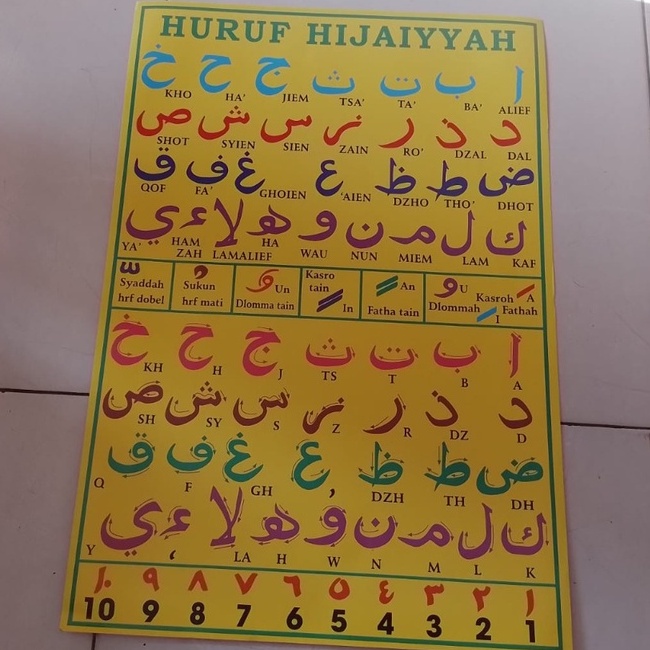 HURUF HIJAIYYAH
ا ب ت ث ج ح خ
KHO HA' JIEM TSA' TA' BA' ALIEF
د ذ ر ز س ش ص
SHOT SYIEN SIEN ZAIN RO' DZAL DAL
ض ط ظ ع غ ف ق
QOF FA' GHOIEN 'AIEN DZHO THO' DHOT
ك ل م ن و ه لا ء ي
YA' HAM ZAH LAMALIEF HA WAU NUN MIEM LAM KAF
Syaddah hrf dobel
Sukun hrf mati
Un Dlomma tain
Kasro tain In
An Fatha tain
U Dlommah Kasroh I A Fathah
ا ب ت ث ج ح خ
KH H J TS T B A
د ذ ر ز س ش ص
SH SY S Z R DZ D
ض ط ظ ع غ ف ق
Q F GH ʼ DZH TH DH
ك ل م ن و ه لا ء ي
Y ‘ LA H W N M L K
١٠ ٩ ٨ ٧ ٦ ٥ ٤ ٣ ٢ ١
10 9 8 7 6 5 4 3 2 1